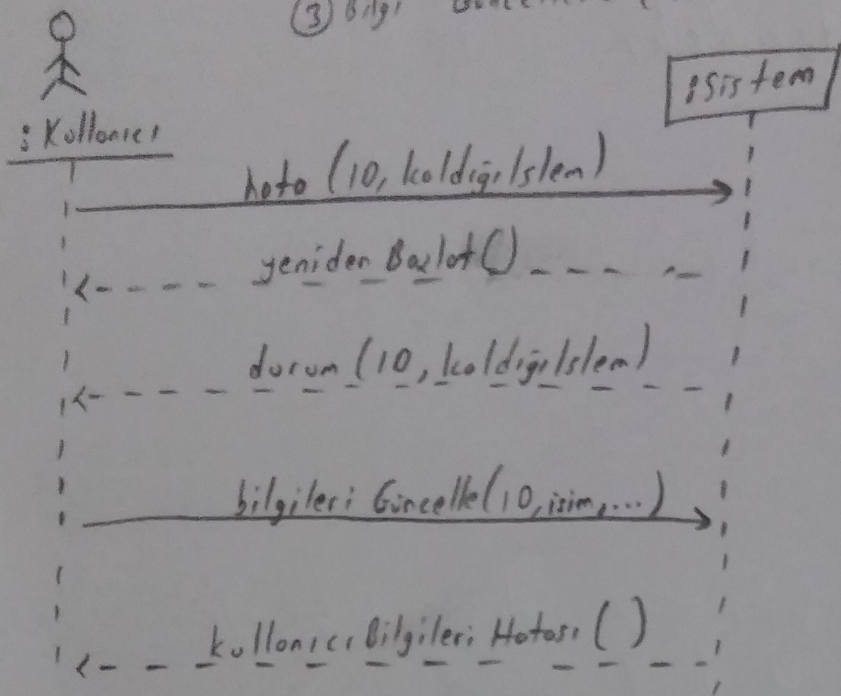 ③ Bilgi
:Kullanıcı
:Sistem
hata (10, kaldığıİslem)
yeniden Baslat()
durum (10, kaldığıIslem)
bilgileri Güncelle(10, isim, ...)
kullanıcı Bilgileri Hatası ( )